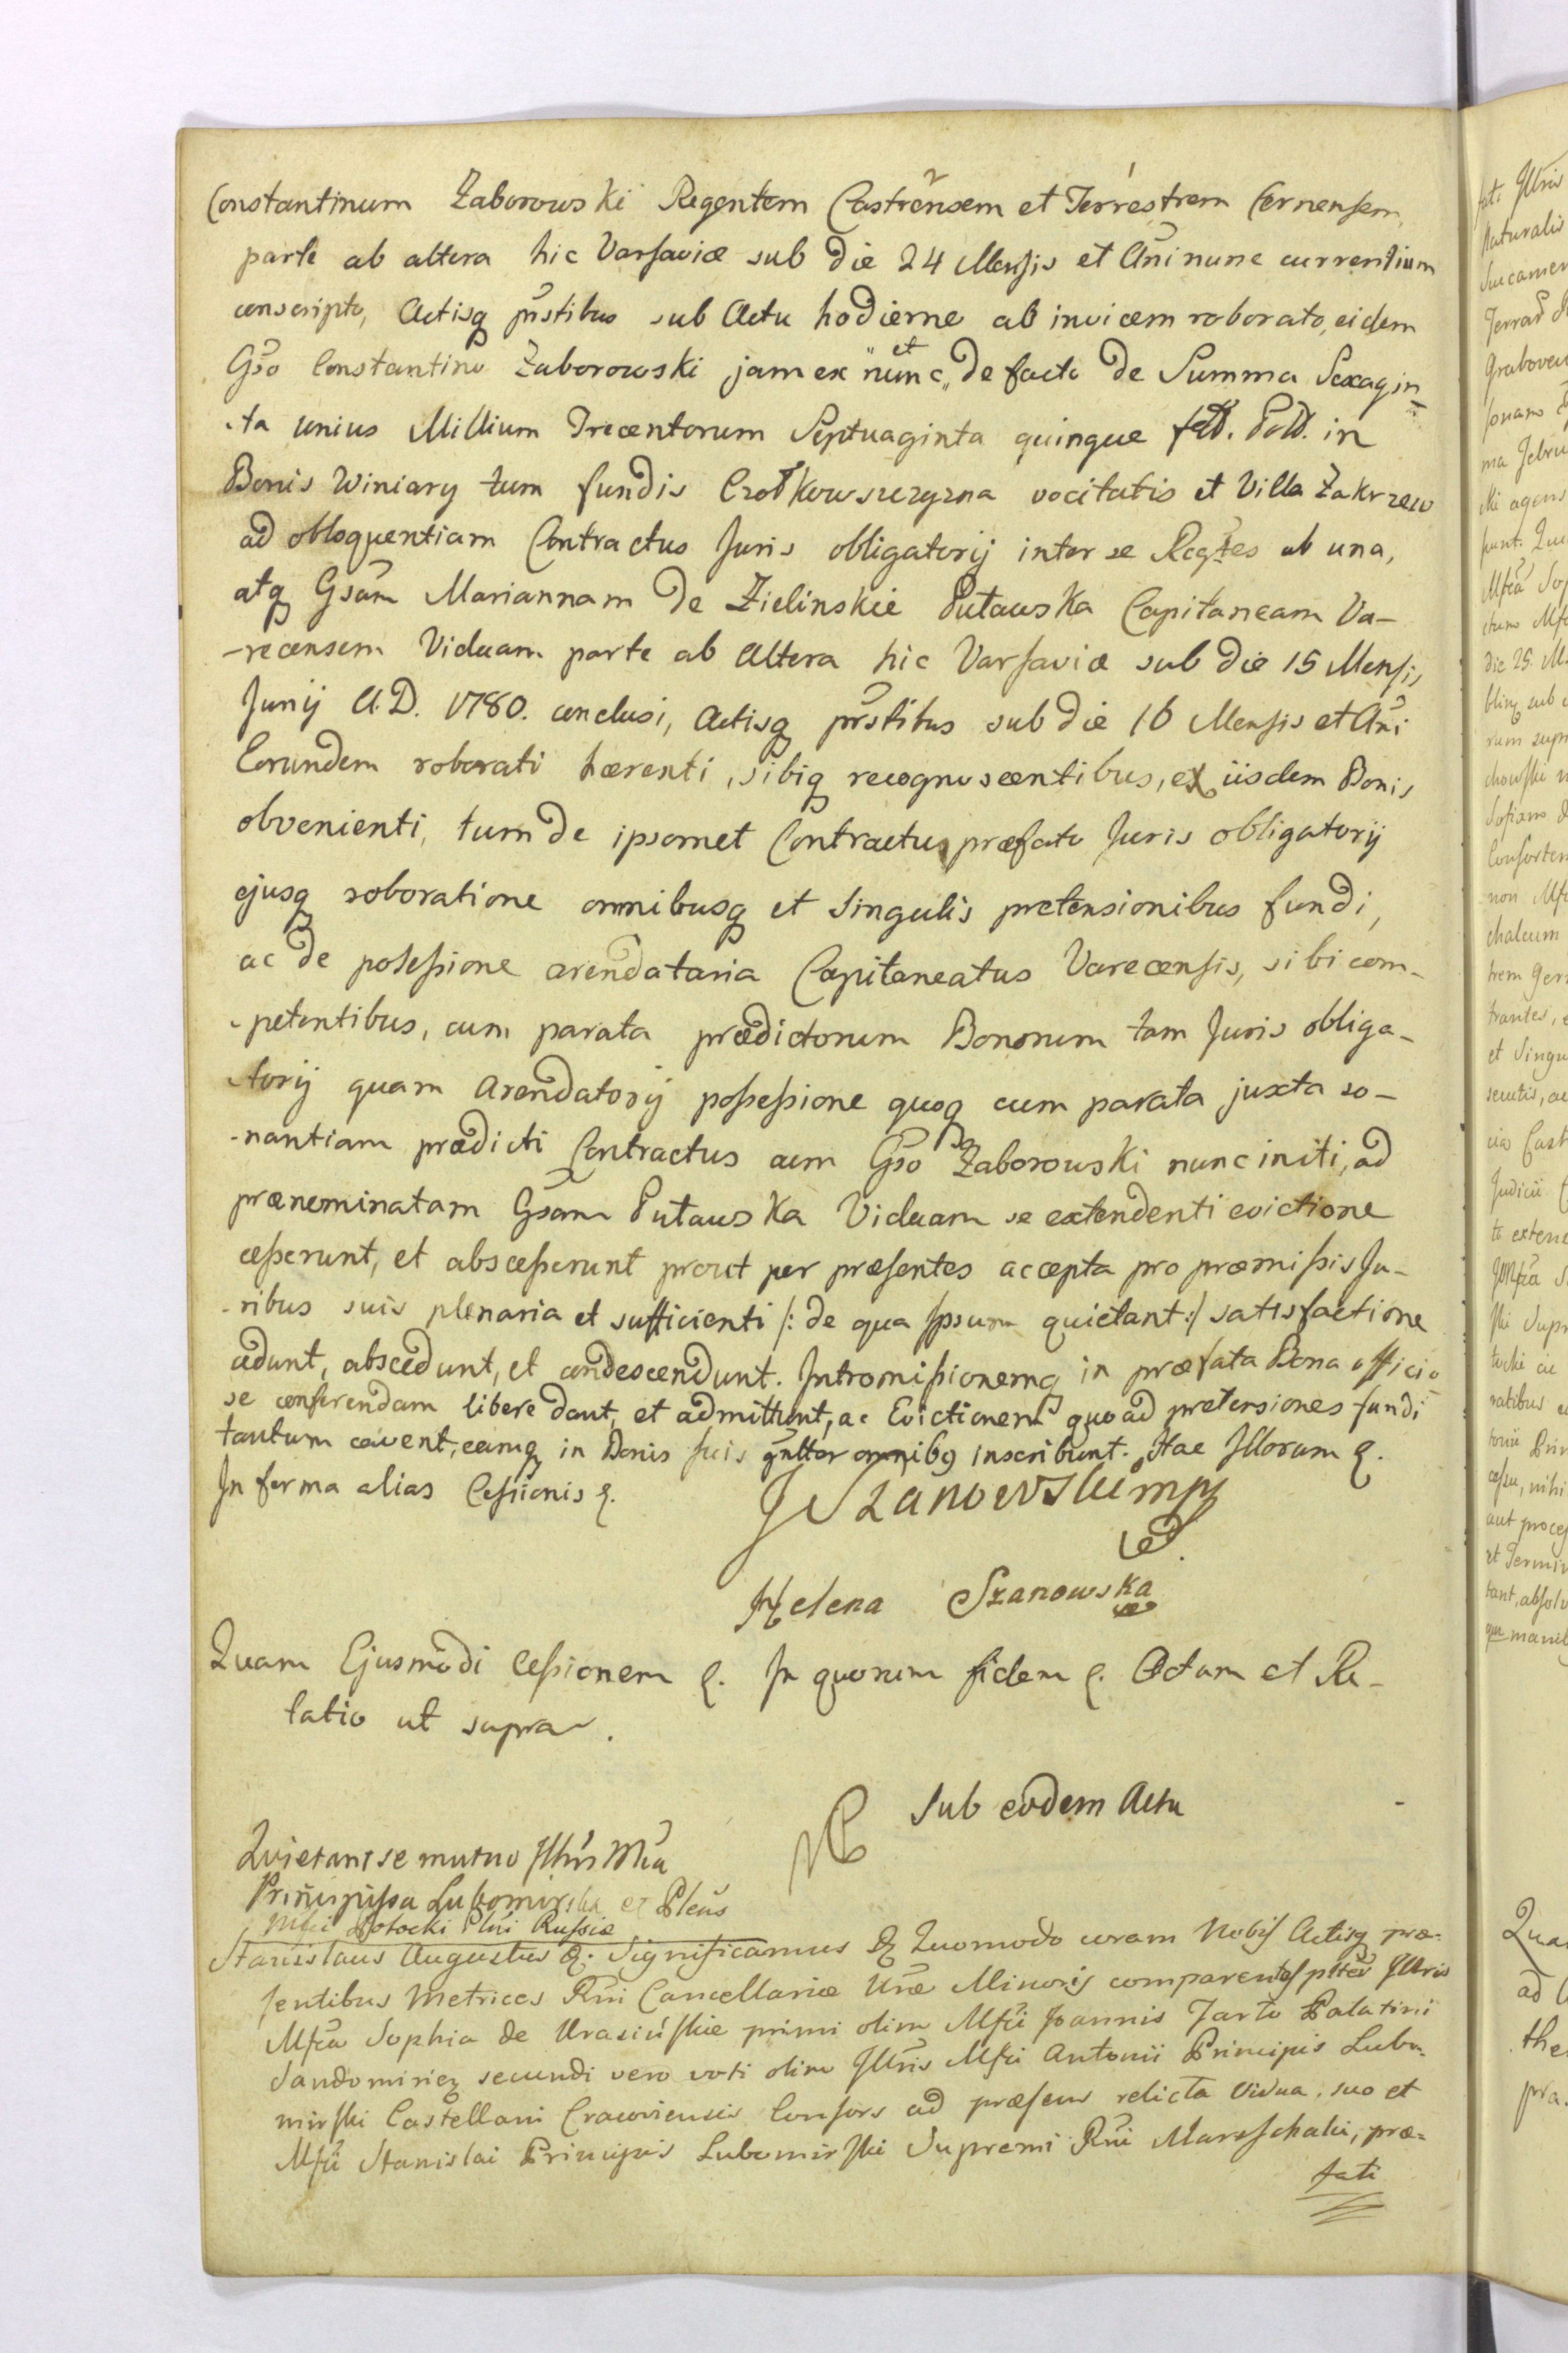 Constantinum Zaborowski Regentem Castrensem et Terrestrem Cernensem,
parte ab altera hic Varsaviæ sub die 24 Mensis et Ani nunc currentium
conscripto, Actisq pnstibus sub Actu hodierno ab invicem roborato, eidem
Gso Constantino Zaborowski jam ex nunc et de facto de Summa Sexagin-
-ta unius Millium Trecentorum Septuaginta quinque in
Bonis Winiary tum fundis vocitatis et Villa Zakrzew
ad obloquentiam Contractus Juris obligatorij inter se Rcgtes ab una,
atq Gsam Mariannam de Zielinskie Putawska Capitaneam Va-
-recensem Viduam parte ab altera hic Varsaviæ sub die 15 Mensis
Junij A.D. 1780. conclusi, Actisq prstibus sub die 16 Mensis et Ani
Eorundem roborati hærenti, sibiq recognoscentibus, ex iisdem Bonis
obvenienti, tum de ipsomet Contractu præfato Juris obligatorij
ejusq roboratione omnibusq et singulis pretensionibus fundi,
ac de possessione arendataria Capitaneatus Varecensis, sibi com-
-petentibus, cum parata prædictorum Bonorum tam Juris obliga-
-torij quam Arendatorij possessione quoq cum parata juxta so-
-nantiam prædicti Contractus cum Gso Zaborowski nunc initi, ad
prænominatam Gsam Putawska Viduam se extendenti evictione
cesserunt, et abscesserunt prout per præsentes accepta pro præmissis Ju-
-ribus suis plenaria et sufficienti /: de qua Ipsum quietant :/ satisfactione
cedunt, abscedunt, et condescendunt. Intromissionemq in præfata Bona officio
se conferendam libere dant, et admittunt, ac Evictionem quoad pretensiones fundi
tantum cavent, eamq in Bonis suis gnlter omnibq inscribunt. Hac Illorum &.
In forma alias Cessionis &. JSzanowski mp
Helena Szanowska
Quam Ejusmodi Cessionem &. In quorum fidem &. Actum et Re-
latio ut supra.
Sub eodem Actu
Quietant se mutuo Illris Mca
Principissa Lubomirska et Plens
Mfci Potocki Plni Russiæ
Stanislaus Augustus &. Significamus & Quomodo coram Nobis Actisq præ-
sentibus Metrices Rni Cancellariæ Nræ Minoris comparentes plter Illris
Mfca Sophia de Krasińskie primi olim Mfci Joannis Tarło Palatini
Sandomirien secundi vero voti olim Illris Mfci Antonii Principis Lubo-
mirski Castellani Cracoviensis Consors ad præsens relicta Vidua, suo et
Mfci Stanislai Principis Lubomirski Supremi Rni Marschalci, præ-
fati